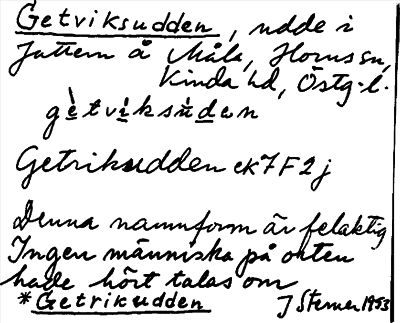 Getviksudden, udde i
Juttern å Måla, Horns sn,
Kinda hd, Östg.l.
gètviksùden
Getriksudden ek 7F2j
Denna namnform är felaktig
Ingen människa på orten
hade hört talas om
*Getrikudden J Sterner 1953